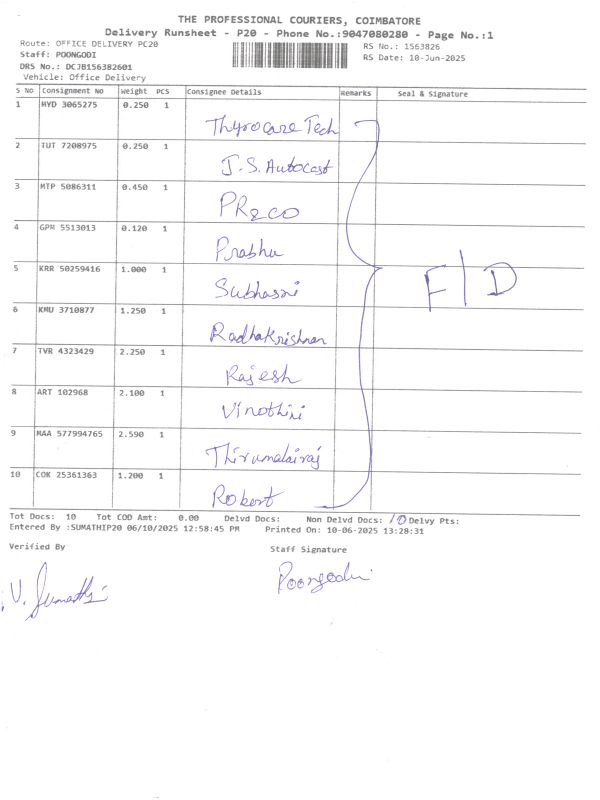 THE PROFESSIONAL COURIERS, COIMBATORE
Delivery Runsheet - P20 - Phone No.:9047080280 - Page No.:1
Route: OFFICE DELIVERY PC20
RS No.: 1563826
Staff: POONGODI
RS Date: 10-Jun-2025
DRS No.: DCJB156382601
Vehicle: Office Delivery
S NO Consignment No Weight PCS Consignee Details Remarks Seal & Signature
1 HYD 3065275 0.250 1 Thyrocare Tech
2 TUT 7208975 0.250 1 J.S. Autocast
3 MTP 5086311 0.450 1 PR&CO
4 GPM 5513013 0.120 1 Prabhu
5 KRR 50259416 1.000 1 Subhasni F/D
6 KMU 3710877 1.250 1 Radhakrishnan
7 TVR 4323429 2.250 1 Rajesh
8 ART 102968 2.100 1 Vinothini
9 MAA 577994765 2.590 1 Thirumalairaj
10 COK 25361363 1.200 1 Robert
Tot Docs: 10 Tot COD Amt: 0.00 Delvd Docs: Non Delvd Docs: 10 Delvy Pts:
Entered By :SUMATHIP20 06/10/2025 12:58:45 PM Printed On: 10-06-2025 13:28:31
Verified By Staff Signature
V. Sumathi Poongodi